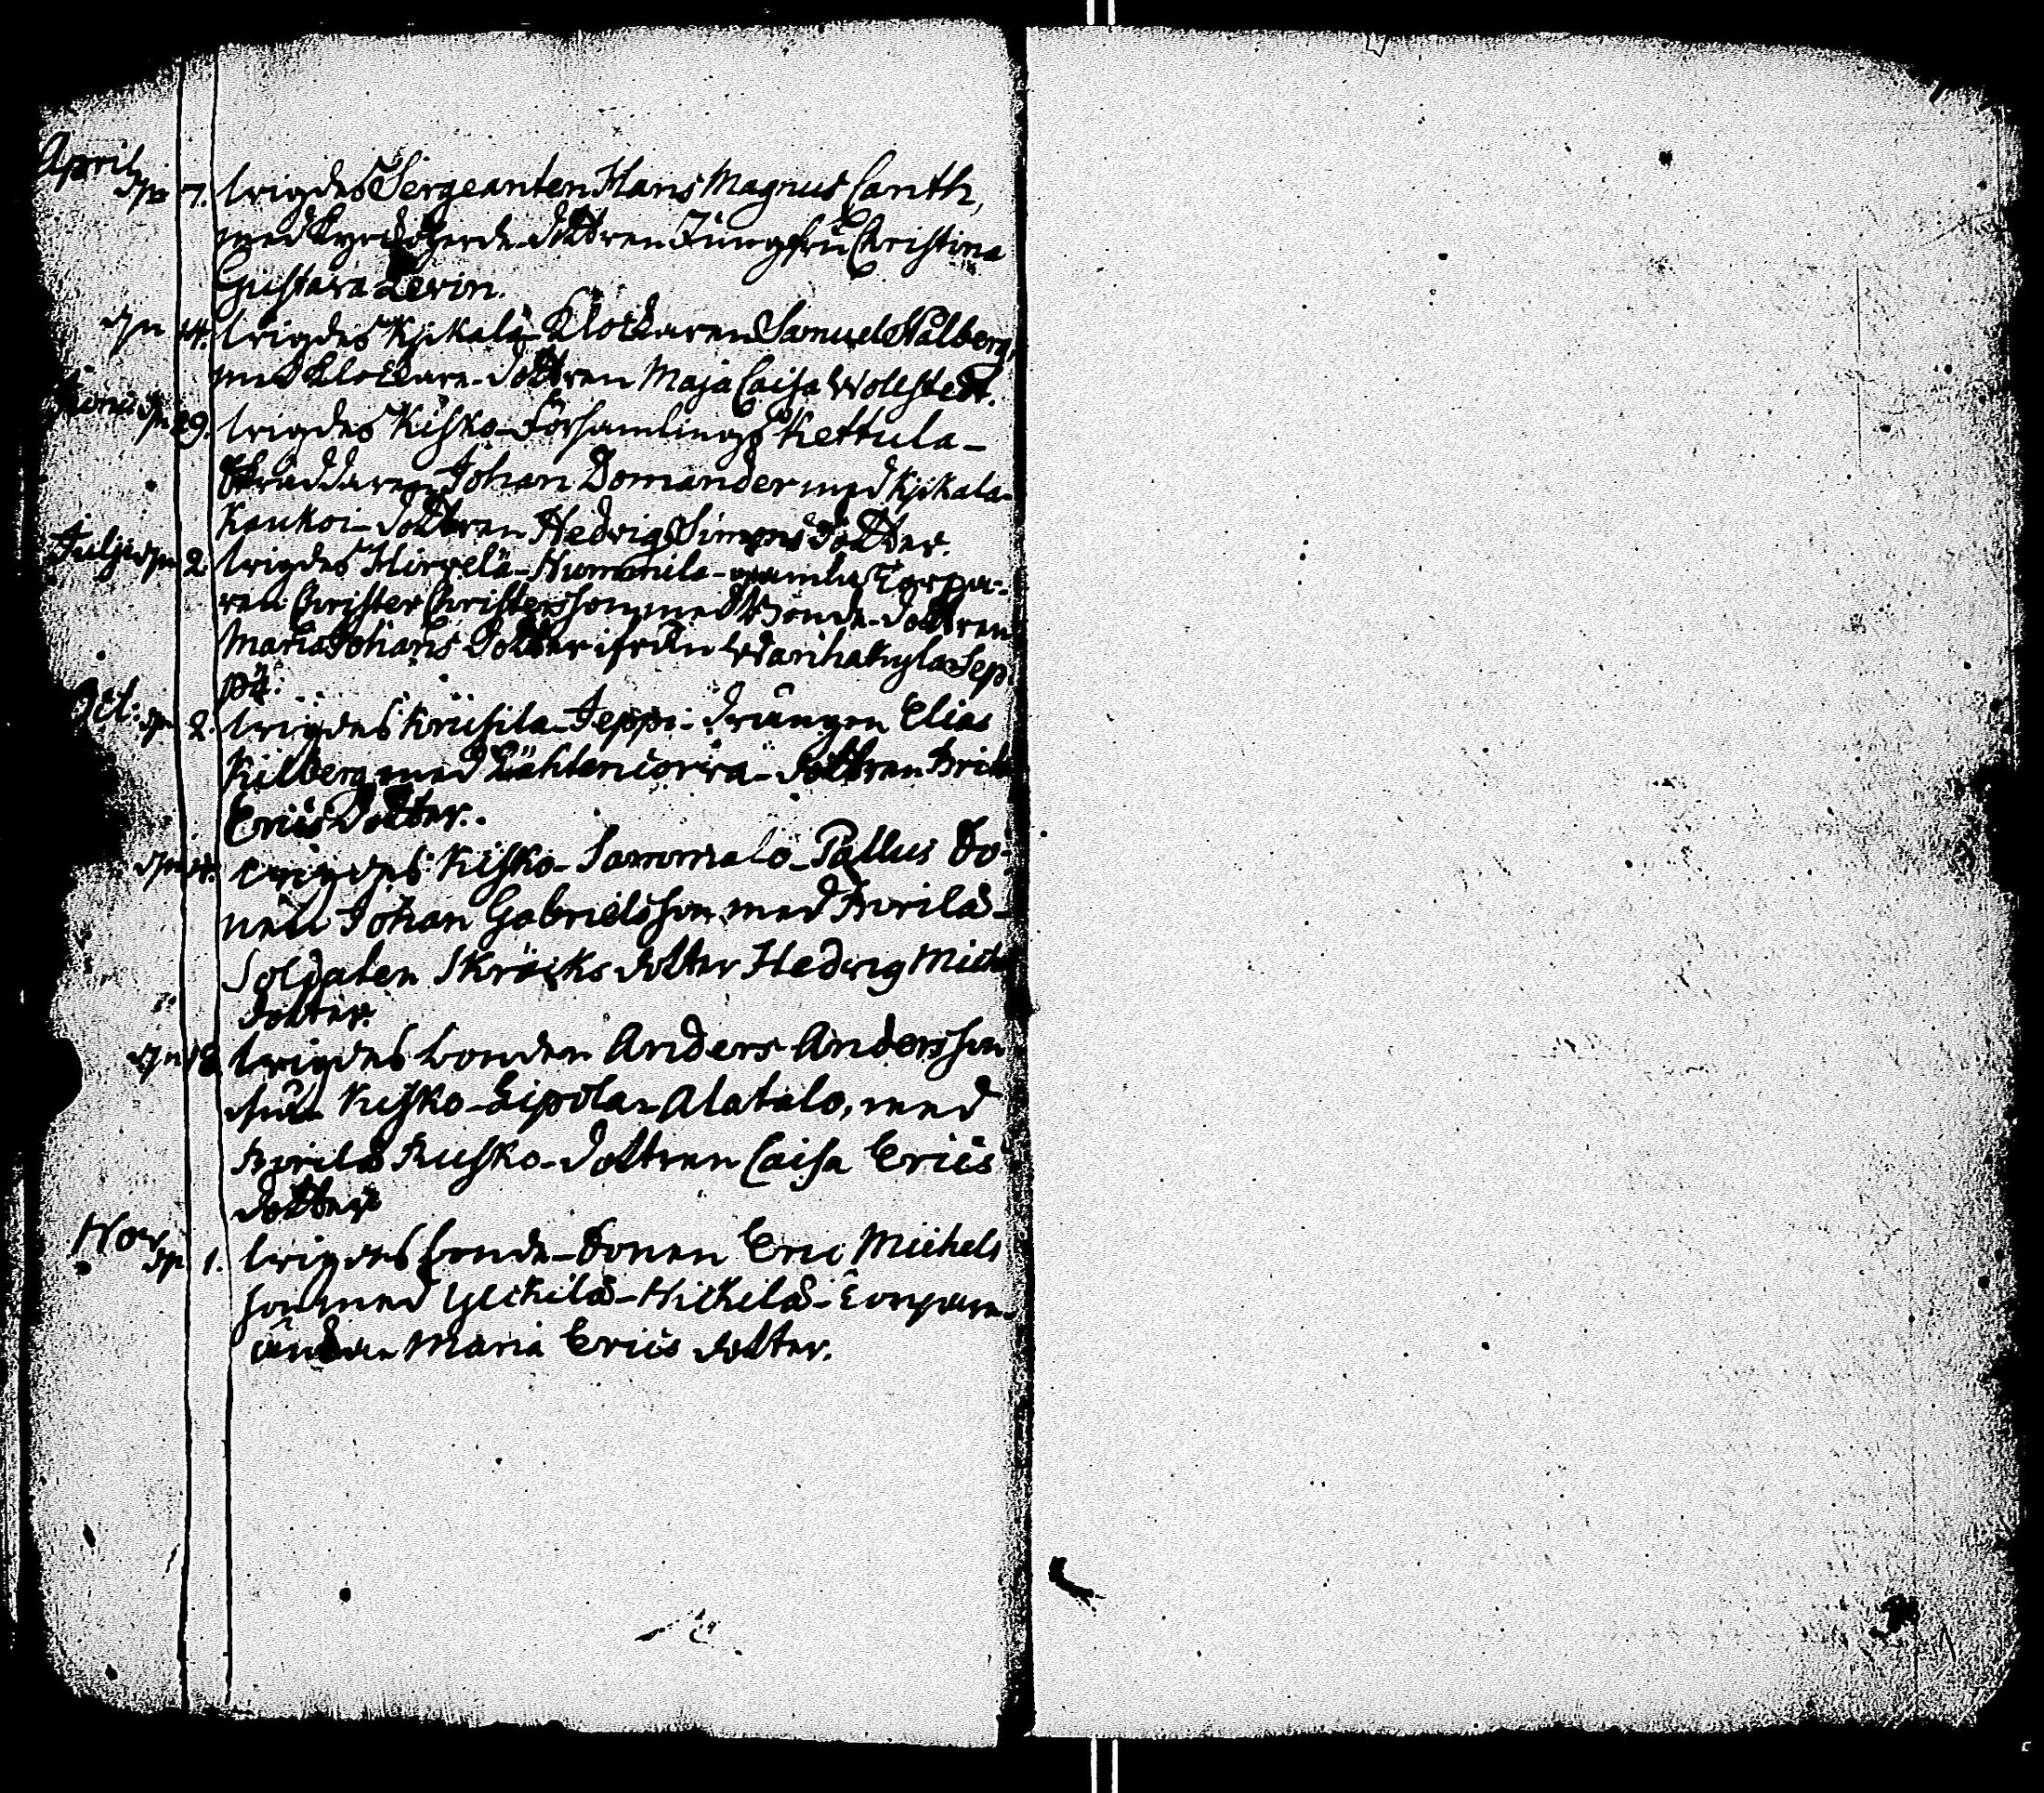 April
dn 7. wigdes Sergeanten Hans Magnus Canth,
med Kyrckoherde-dottren Jungfru Christina
Gustava Levin.
dn 14. wigdes Kjikala-Klockaren Samuel Palberg,
med Klockare-dottren Maja Caisa Wollstedt.
Junii dn 29. wigdes Kisko-Församlings Kettula-
Skräddaren Johan Domander med Kjikala-
Kaukoi-dottren Hedvig Simons dotter.
Julii dn 2. wigdes Hirvelä-Nummila-gamla Torpa-
ren Christer Christersson med Bonde-dottren
Maria Johans dotter ifrån Wanhakyla Sep-
pä.
Oct: dn 2. wigdes Kruusila-Jeppi-drängen Elias
Kilberg med Lähtencorva-dottren Brita
Erics dotter.
dn 14. wigdes Kisko-Sammalo-Pallus So-
nen Johan Gabrielsson med Toorila-
Soldaten Skräcks dotter Hedvig Michels
dotter.
dn 18. wigdes bonden Anders Andersson
från Kisko-Lipola-Alatalo, med
Toorila Rusko-dottren Caisa Erics
dotter
Nov.
dn 1. wigdes bonde-Sonen Eric Michels
son med Ylikila-Nickila-Torpare-
änkan Maria Erics dotter.